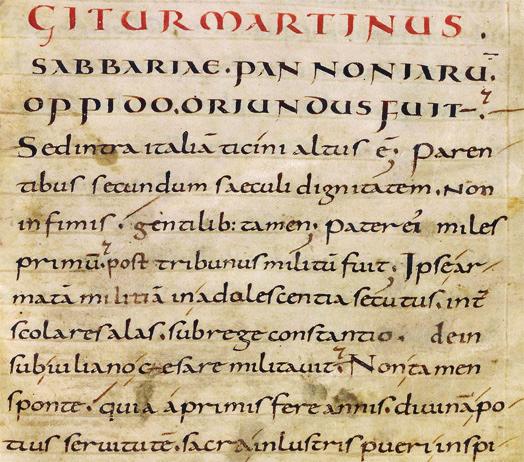 GITUR MARTINUS.
SABBARIAE. PANNONIARŪ.
OPPIDO. ORIUNDUS FUIT.
Sed intra italiā ticini altus ē. Paren
tibus secundum saeculi dignitatem. Non
infimis. gentilib: tamen. Pater ei miles
primū. post tribunus militū fuit. Ipse ar
matā militiā in adolescentia secutus. int̄
scolares alas. sub rege constantio. dein
sub iuliano caesare militavit. Non tamen
sponte. quia a primis fere annis. divinā po
tius servitutē. sacra inlustris pueri inspi